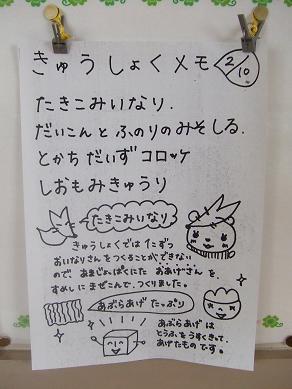 きゅうしょくメモ 2/10
たきこみいなり.
だいこんとふのりのみそしる.
とかちだいずコロッケ
しおもみきゅうり
たきこみいなり
きゅうしょくでは1こずつ
おいなりさんをつくることができない
ので あまじょっぱくにた おあげさんを
すめしに まぜこんで、つくりました。
あぶらあげ たっぷり
あぶらあげ は
とうふをうすくきって、
あげたもの です。